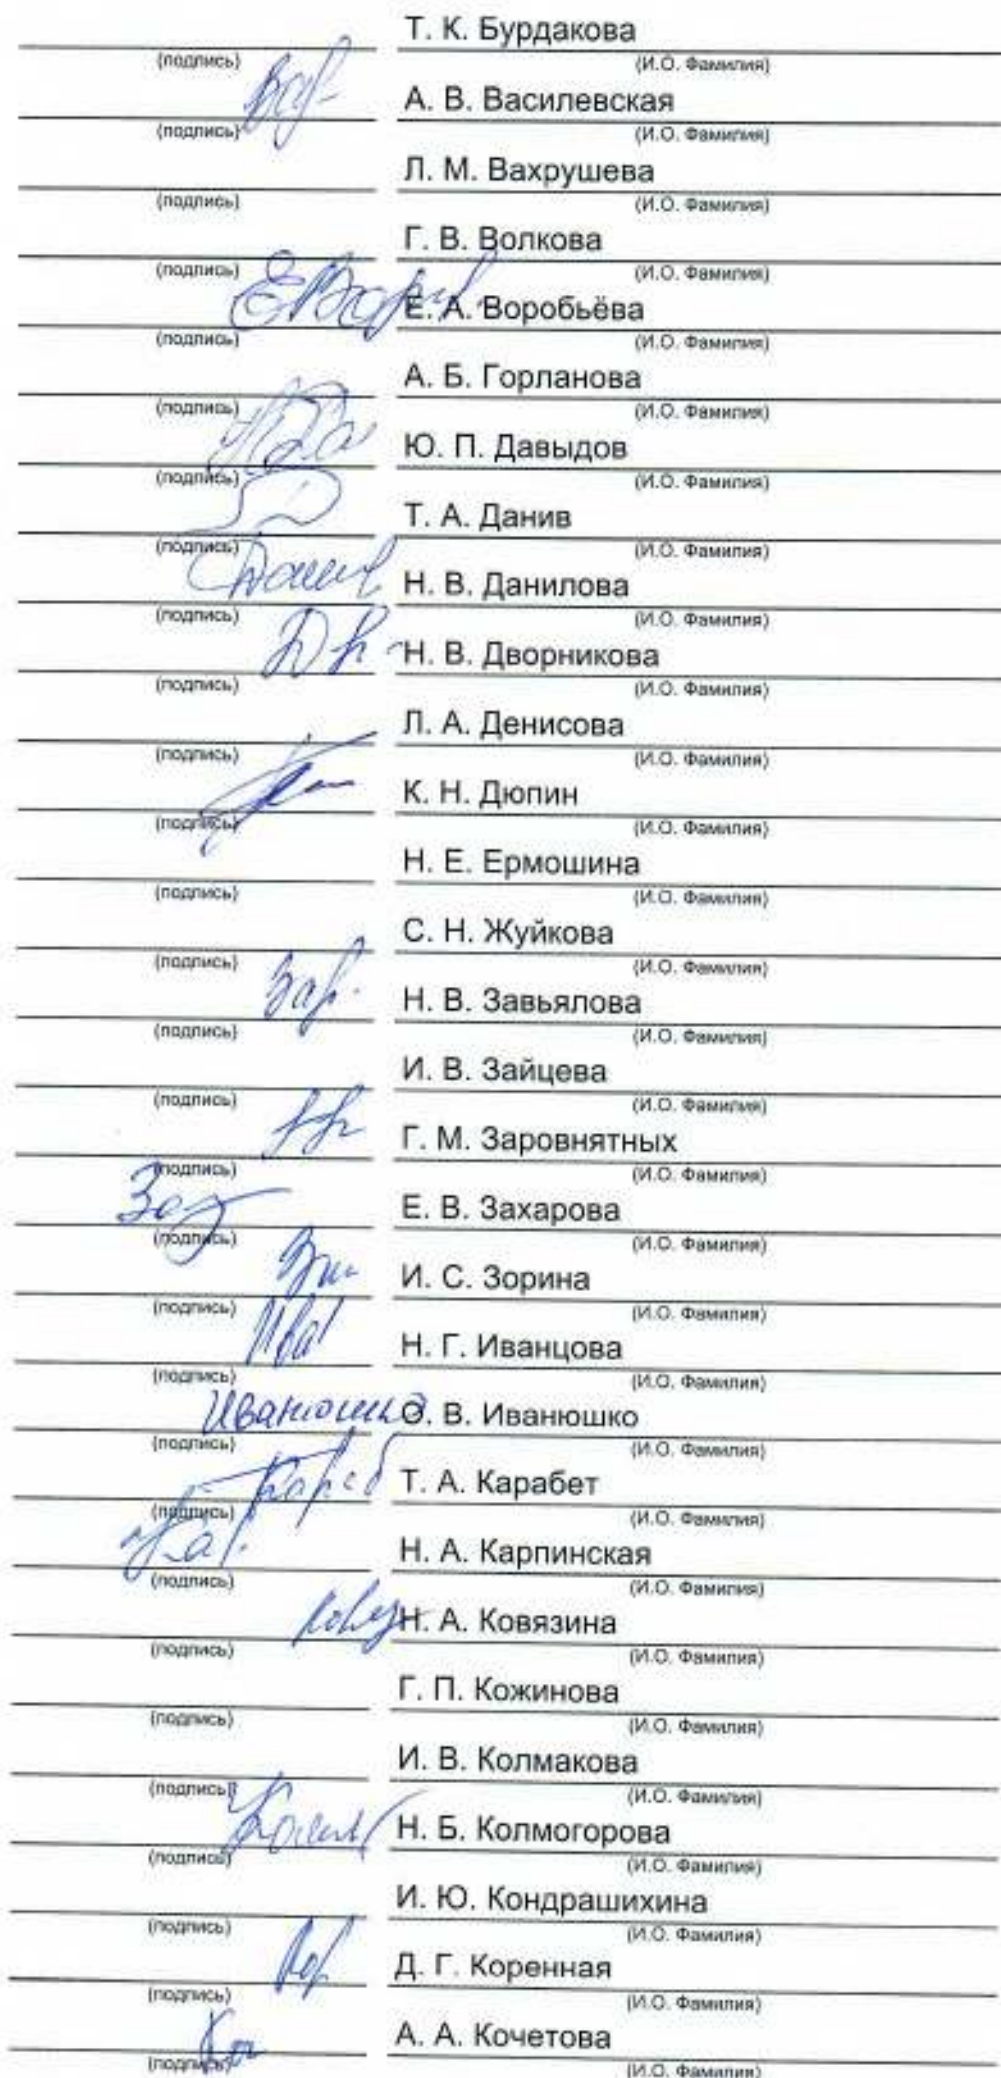 Т. К. Бурдакова
(подпись) (И.О. Фамилия)
А. В. Василевская
(подпись) (И.О. Фамилия)
Л. М. Вахрушева
(подпись) (И.О. Фамилия)
Г. В. Волкова
(подпись) (И.О. Фамилия)
Е. А. Воробьёва
(подпись) (И.О. Фамилия)
А. Б. Горланова
(подпись) (И.О. Фамилия)
Ю. П. Давыдов
(подпись) (И.О. Фамилия)
Т. А. Данив
(подпись) (И.О. Фамилия)
Н. В. Данилова
(подпись) (И.О. Фамилия)
Н. В. Дворникова
(подпись) (И.О. Фамилия)
Л. А. Денисова
(подпись) (И.О. Фамилия)
К. Н. Дюпин
(подпись) (И.О. Фамилия)
Н. Е. Ермошина
(подпись) (И.О. Фамилия)
С. Н. Жуйкова
(подпись) (И.О. Фамилия)
Н. В. Завьялова
(подпись) (И.О. Фамилия)
И. В. Зайцева
(подпись) (И.О. Фамилия)
Г. М. Заровнятных
(подпись) (И.О. Фамилия)
Е. В. Захарова
(подпись) (И.О. Фамилия)
И. С. Зорина
(подпись) (И.О. Фамилия)
Н. Г. Иванцова
(подпись) (И.О. Фамилия)
Иванюшко О. В. Иванюшко
(подпись) (И.О. Фамилия)
Т. А. Карабет
(подпись) (И.О. Фамилия)
Н. А. Карпинская
(подпись) (И.О. Фамилия)
Н. А. Ковязина
(подпись) (И.О. Фамилия)
Г. П. Кожинова
(подпись) (И.О. Фамилия)
И. В. Колмакова
(подпись) (И.О. Фамилия)
Н. Б. Колмогорова
(подпись) (И.О. Фамилия)
И. Ю. Кондрашихина
(подпись) (И.О. Фамилия)
Д. Г. Коренная
(подпись) (И.О. Фамилия)
А. А. Кочетова
(подпись) (И.О. Фамилия)